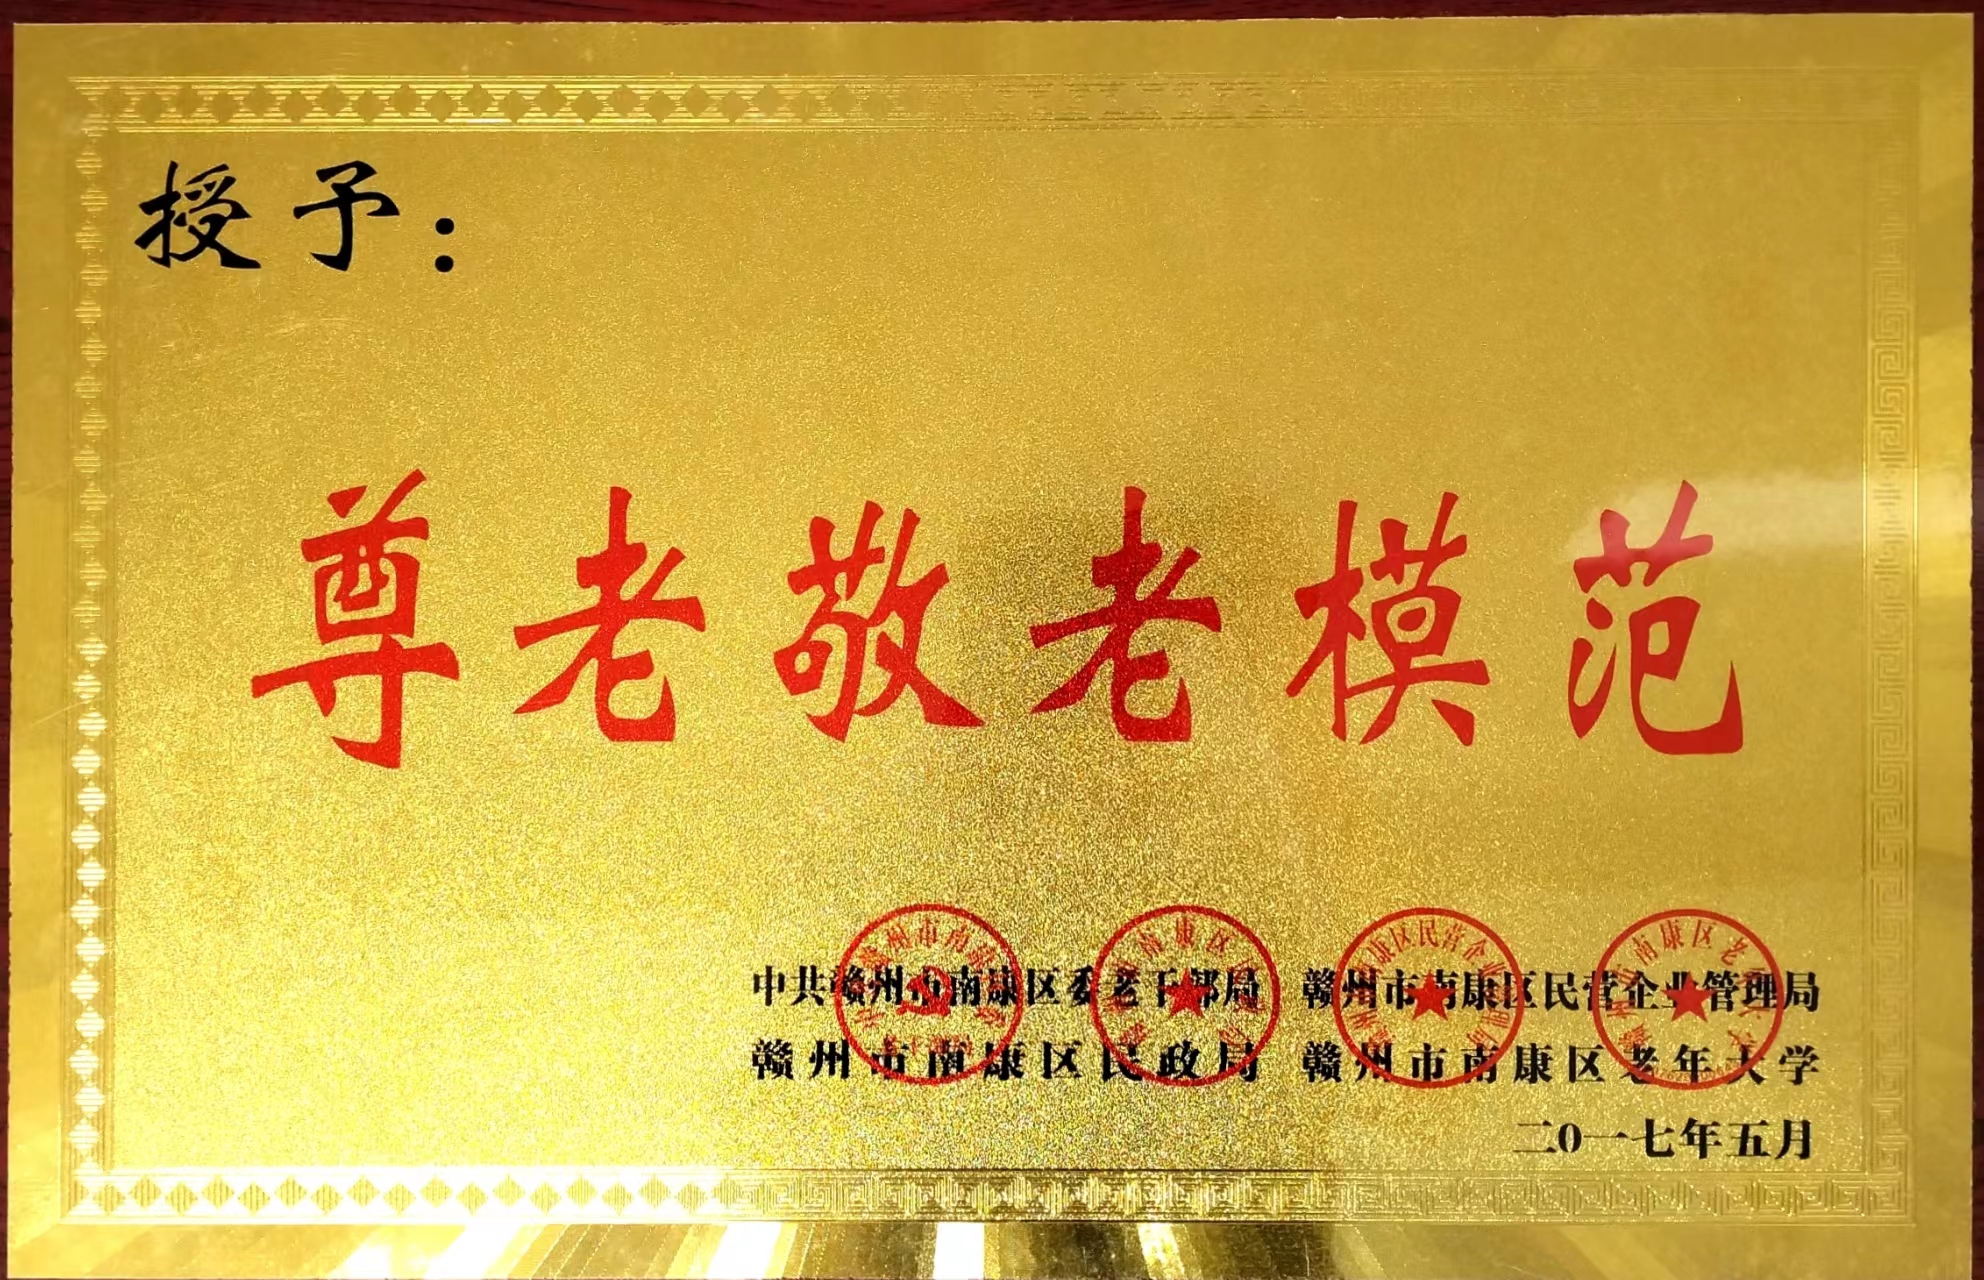 授予：
尊老敬老模范
中共赣州市南康区委老干部局 赣州市南康区民营企业管理局
赣州市南康区民政局 赣州市南康区老年大学
二0一七年五月